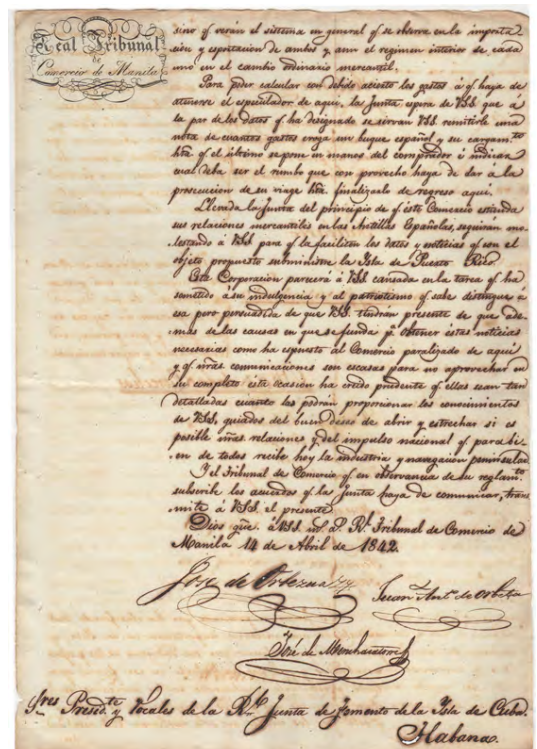 Real Tribunal
de
Comercio de Manila
sino qᵉ verán el sistema en general qᵉ se observa en la importa
cion y esportacion de ambos y aun el regimen interior de cada
uno en el cambio ordinario mercantil.
Para poder calcular con debido acierto los gastos á qᵉ haya de
atenerse el especulador de aqui, la Junta espera de VSS que á
la par de los datos qᵉ ha designado se sirvan VSS remitirle una
nota de cuantos gastos eroga un buque español y su cargamᵗᵒ
htᵃ qᵉ el último se pone en manos del comprador é indicar
cual deba ser el rumbo que con provecho haya de dar á la
prosecucion de su viage htᵃ finalizarlo de regreso aqui.
Llevada la Junta del principio de qᵉ este Comercio estienda
sus relaciones mercantiles en las Antillas Españolas, seguirán mo
lestando á VSS para qᵉ la faciliten los datos y noticias qᵉ con el
objeto propuesto subministre la Isla de Puerto Rico.
Esta Corporacion parecerá á VSS cansada en la tarea qᵉ ha
sometido a su indulgencia y al patriotismo qᵉ sabe distingue á
esa pero persuadida de que VSS. tendran presente de que ade
mas de las causas en que se funda pᵃ obtener estas noticias
necesarias como ha espuesto al Comercio paralizado de aqui
y qᵉ ntras comunicaciones son escasas para no aprovechar en
su completo esta ocasion ha creido prudente qᵉ ellas sean tan
detalladas cuanto les podran proporcionar los conocimientos
de VSS, guiados del buen deseo de abrir y estrechar si es
posible ntras relaciones y del impulso nacional qᵉ para bi
en de todos recibe hoy la industria y navegacion peninsular
Y el Tribunal de Comercio qᵉ en observancia de su reglamᵗᵒ
subscribe los acuerdos qᵉ la Junta haya de comunicar, trans
mite á VSS el presente
Dios gũe. á VSS. mˢ aˢ Rˡ Tribunal de Comercio de
Manila 14 de Abril de 1842.
José de
Juan Antᵒ de
José de
Sʳᵉˢ Presidᵗᵉ y Vocales de la Rˡ Junta de Fomento de la Isla de Cuba.
Habana.